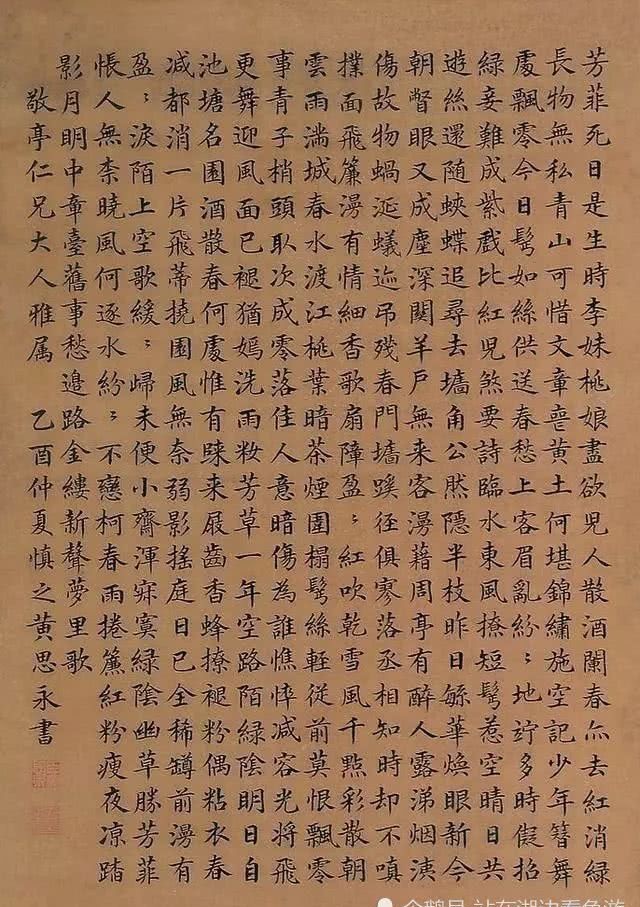 芳菲死日是生時李妹桃娘盡欲兒人散酒闌春亦去紅消綠
長物無私青山可惜文章喪黃土何堪錦繡施空記少年簪舞
處飄零今日鬢如絲供送春愁上客眉亂紛〻地竚多時儗招
綠妾難成紫戲比紅兒煞要詩臨水東風撩短鬢惹空晴日共
遊絲還隨蛺蝶追尋去墻角公然隱半枝昨日緐華煥眼新今
朝瞥眼又成塵深關羊戶無来客漫藉周亭有醉人露涕烟洟
傷故物蝸涎蟻迹吊殘春門墻蹊徑俱寥落丞相知時却不嗔
撲面飛簾漫有情細香歌扇障盈〻紅吹乾雪風千點彩散朝
雲雨満城春水渡江桃葉暗茶煙圍榻鬢絲輕從前莫恨飄零
事青子梢頭取次成零落佳人意暗傷為誰憔悴减容光將飛
更舞迎風面已褪猶嫣洗雨妝芳草一年空路陌綠陰明日自
池塘名園酒散春何處惟有睐来屐齒香蜂撩褪粉偶粘衣春
减都消一片飛蒂撓園風無奈弱影搖庭日已全稀罇前漫有
盈〻淚陌上空歌緩〻歸未便小齋渾寂寞綠陰幽草勝芳菲
悵人無柰曉風何逐水紛〻不戀柯春雨捲簾紅粉瘦夜凉踏
影月明中章臺舊事愁邉路金縷新聲夢里歌
敬亭仁兄大人雅属 乙酉仲夏慎之黃思永書
站在湖边看鱼游